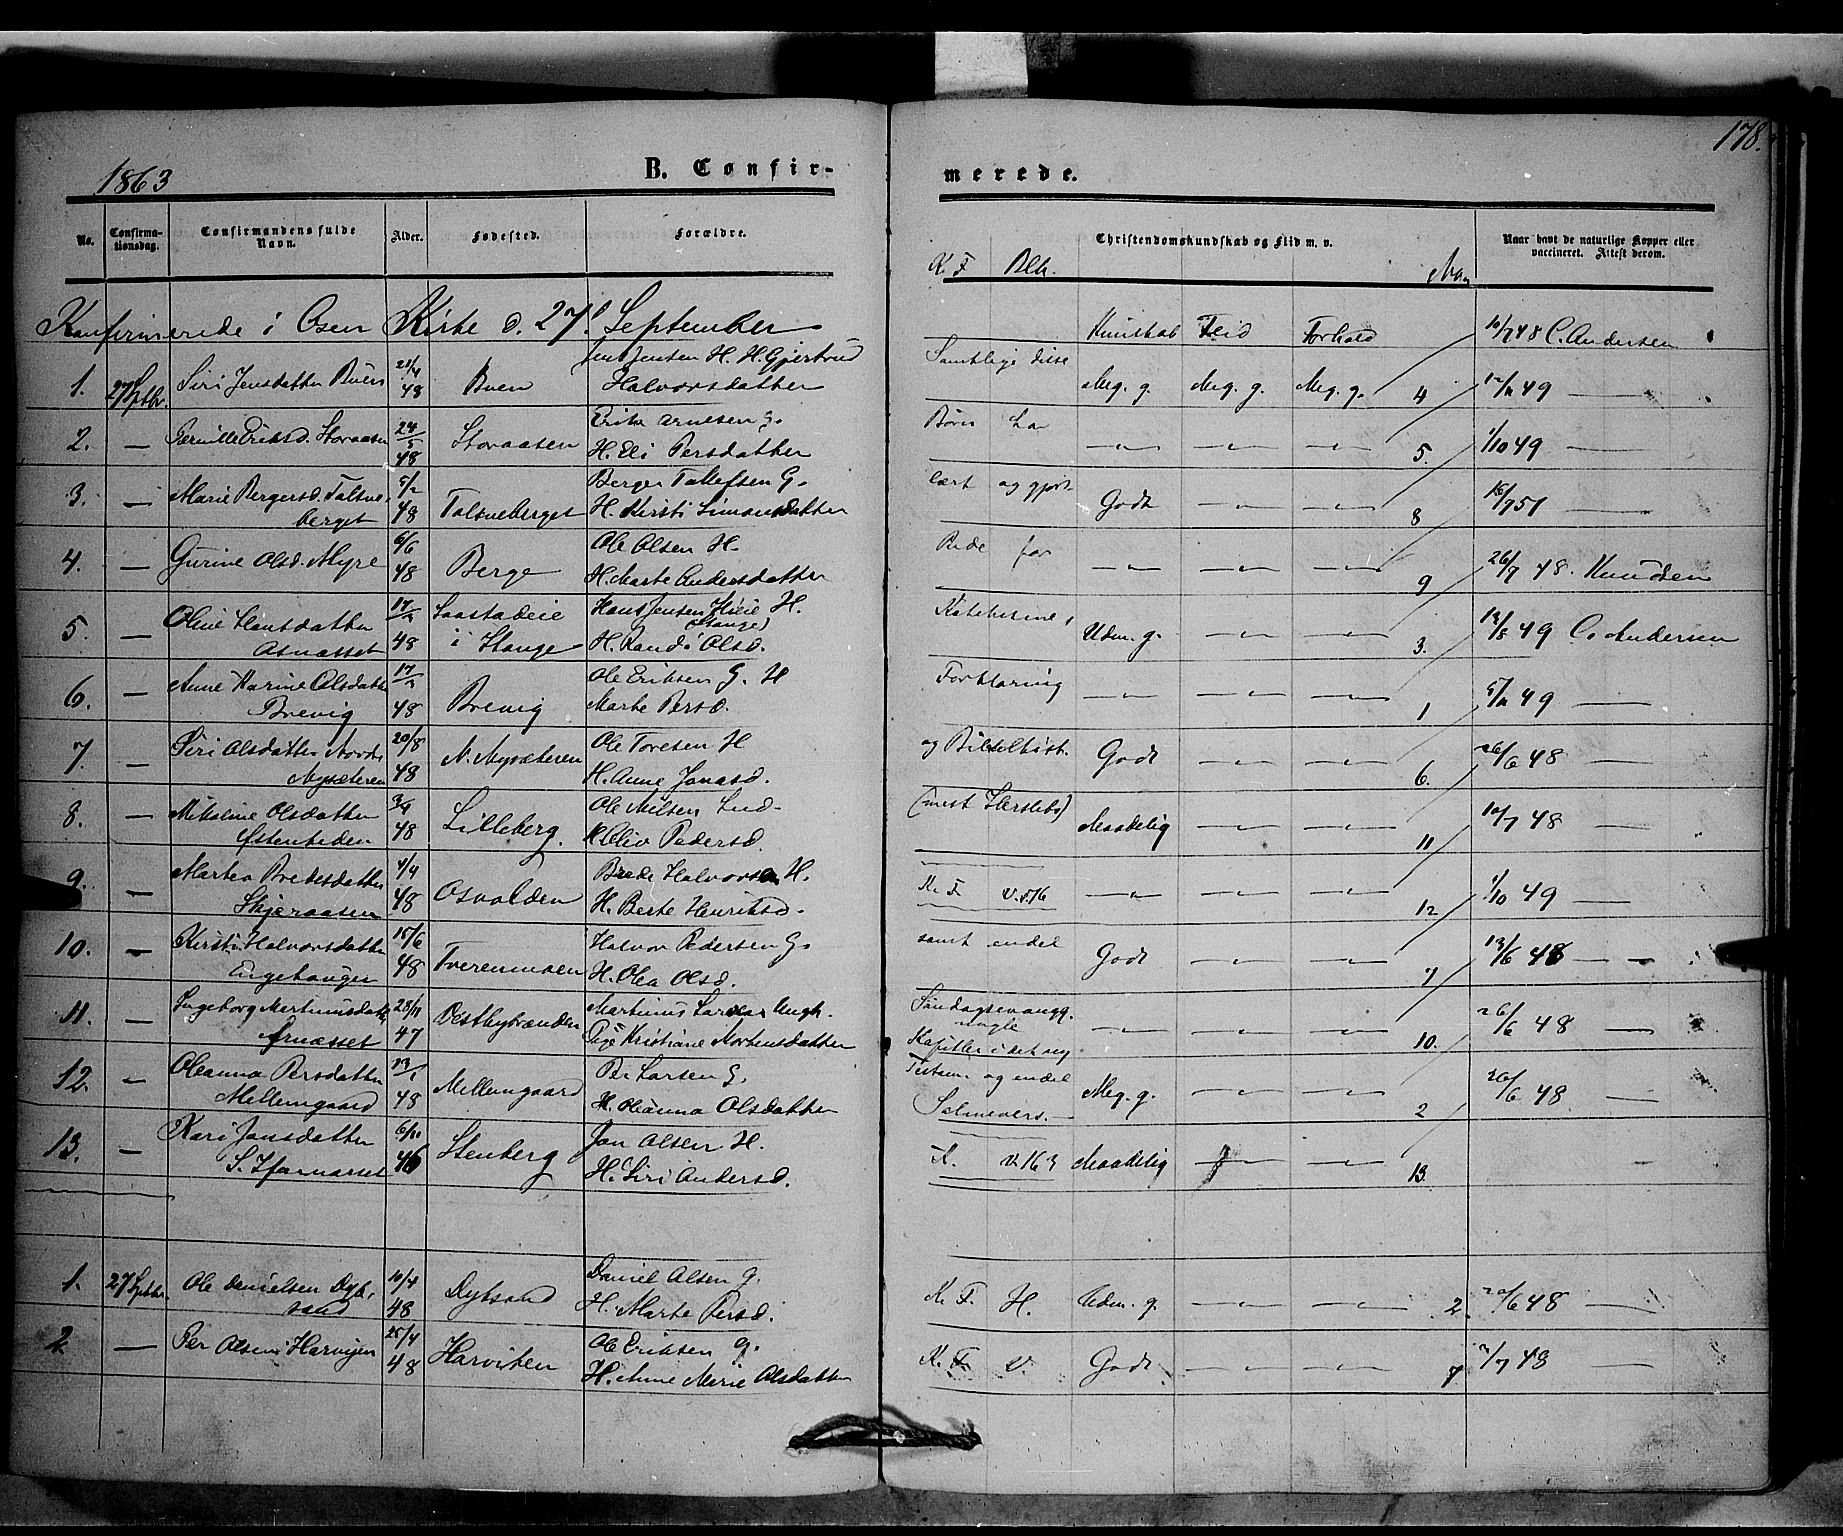 178.
1863
B. Confir-
merede.
No.
Confirma-
tionsdag.
Confirmandens fulde
Navn.
Alder.
Fødested.
Forældre.
Christendomskundskab og Flid m. v.
Naar havt de naturlige Kopper eller
vaccineret. Attest derom.
K. F.
Konfirmerede i Osen Kirke d. 27d September
Kundskab Flid Forhold
10/7 48 C. Andersen
1. 27 Sptbr. Siri Jensdatter Buen 21/4 48 Buen Jens Jensen H. H. Gjertrud
Halvorsdatter
Samtlige disse Meg. g. Meg. g. Meg. g. 4 49 —
2. — Pernille Eriksd. Storaasen 24/5 48 Storaasen Erik Arnesen G.
H. Eli Persdatter
Børn har — — — 5. 1/10 49
3. — Marie Bergersd. Talsne-
berget 5/2 48 Talsneberget Berger Tollefsen G.
H. Kirsti Simensdatter
lært og gjort Godt — — 8 16/9 51 —
4. — Gurine Olsd. Myre 6/6 48 Berge Ole Olsen H.
H. Marte Andersdatter
Rede for — — — 9 26/7 48. Knudsen
5. — Oline Hansdatter
Asnæsset 48 Saastadeie
i Stange Hans Jensen H.
(Stange)
H. Randi Olsd.
Udm. g. — — 3. 12/8 49 C. Andersen
6. — Anne Karine Olsdatter
Brevig 48 Brevig Ole Eriksen G. H
Marte Persd.
Forklaring — — — 1 49 —
7. — Siri Olsdatter Nordre
Nysæteren 20/8 48 N. Nysæteren Ole Toresen H
H. Anne Jonasd.
og Bibelhist. Godt — — 6. 26/6 48 —
8. — Mikaline Olsdatter
48 Lilleberg. Ole Nilsen Ind.
H. Oliv Pedersd.
(mest Herslebs) Maadelig — — 11 10/7 48 —
9. — Martea Bredesdatter
Skjeraasen 4/4 48 Osvolden Brede Halvorsen H.
H. Berte Henriksd.
K. F. — — — 12 1/10 49 —
10. — Kirsti Halvorsdatter
Engehaugen 15/6 48 Tverenmoen Halvor Pedersen G.
H. Olea Olsd.
samt endel Godt — — 7 12/6 48 — —
11. — Ingeborg Martinusdatter
Arnæsset 28/11 47 Vestbybrænden Martinus Larsen Ungk.
Pige Kristiane Mortensdatter
Søndagsevangg.
nogle
Kapitler i det ny — — — 10. 26/6 48 —
12. — Oleanna Persdatter
Mellemgaard 13/1 48 Mellemgaard Per Larsen G.
H. Oleanna Olsdatter
Testam. og endel
Salmevers. — Meg. g. — — 2 26/6 48 —
13. — Kari Jonsdatter
46 Stenberg Jon Olsen H.
H. Siri Andersd.
K. V. 163 Maadelig — — 13.
1. 27 Sptbr. Ole Danielsen Dyb-
sand 10/4 48 Dybsand Daniel Olsen G.
H. Marte Persd.
K. F. H. Udm. g. — — 2 20/6 48 —
2 — Per Olsen Harvigen 25/4 48 Harviken Ole Eriksen G.
H. Anne Marie Olsdatter
K. F. V. Godt — — 7 48 —